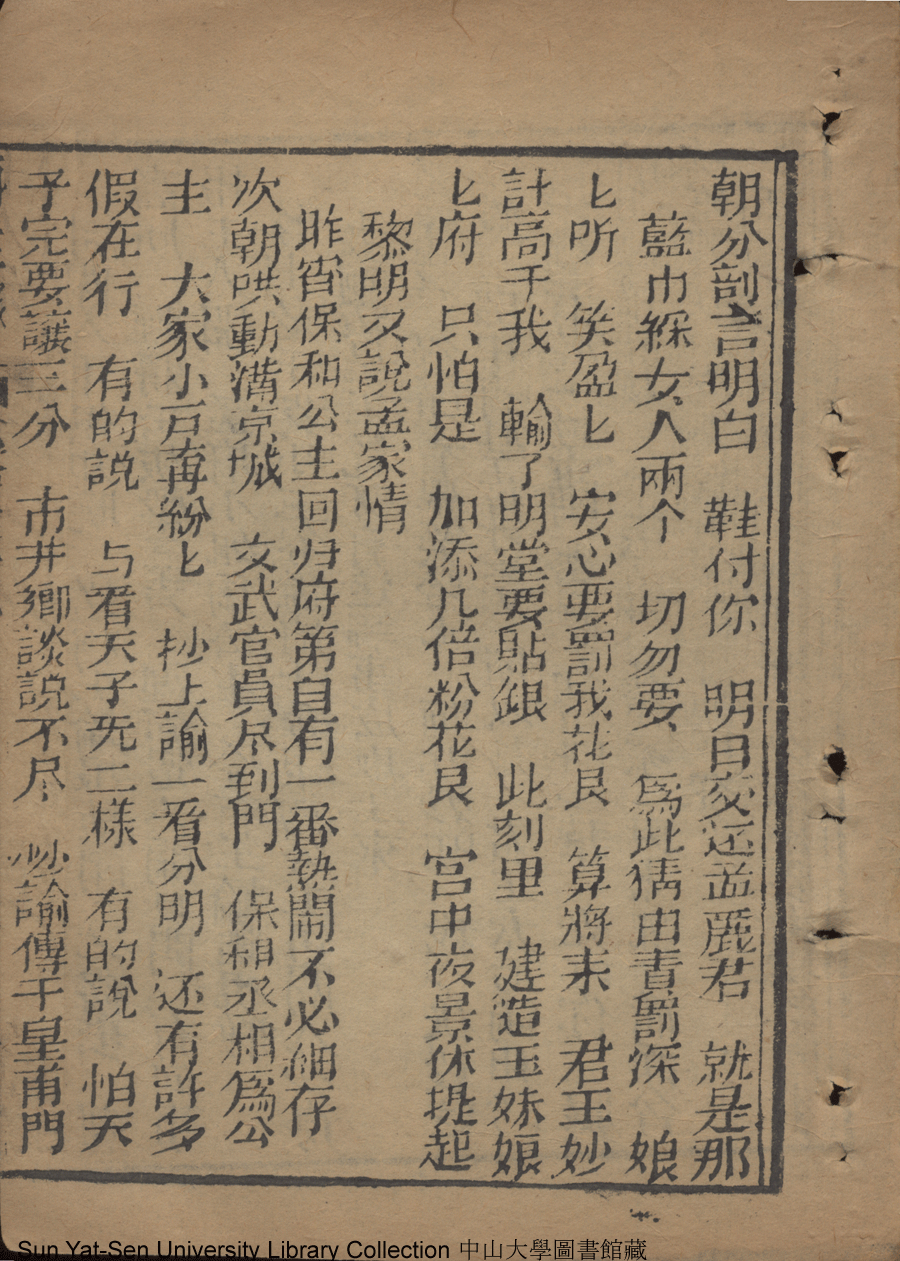 朝分剖言明白　鞋付你　明日交还孟麗君　就是那
藍巾綵女人兩个　切勿要　爲此猜由責罰深　娘
匕听　笑盈匕　安心要罰我花艮　算將來　君王妙
計高于我　輸了明堂要貼銀　此刻里　建造玉妹娘
匕府　只怕是　加添几倍粉花艮　宫中夜景休提起
黎明又說孟家情
昨宵保和公主回归府第自有一番熱鬧不必細存
次朝哄動滿京城　文武官員尽到門　保和丞相爲公
主　大家小戸再紛匕　抄上諭一看分明　还有許多
假在行　有的説　与看天子旡二樣　有的說　怕天
子完要讓三分　市井鄉談説不尽　抄諭傳于皇甫門
Sun Yat-Sen University Library Collection 中山大學圖書館藏